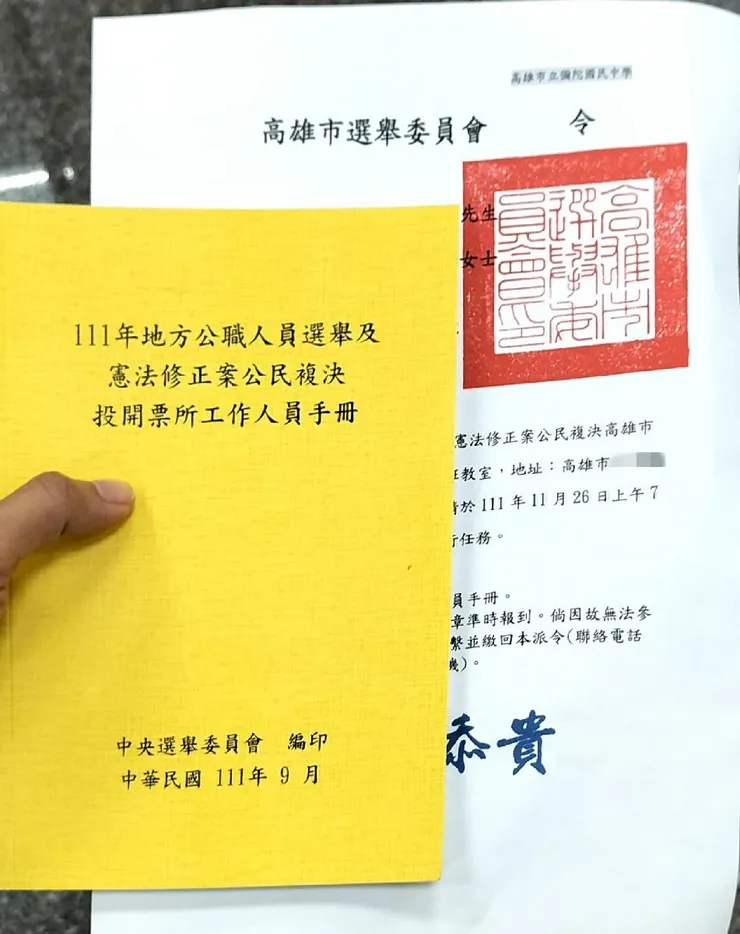 高雄市立彌陀國民中學
高雄市選舉委員會 令
先生
女士
高雄市
選舉委
員會印
111年地方公職人員選舉及
憲法修正案公民複決
投開票所工作人員手冊
中央選舉委員會 編印
中華民國 111年 9 月
憲法修正案公民複決高雄市
教室，地址：高雄市
於 111 年 11 月 26 日上午 7
行任務。
員手冊。
章準時報到。倘因故無法參
繫並繳回本派令(聯絡電話
機)。
恭貴